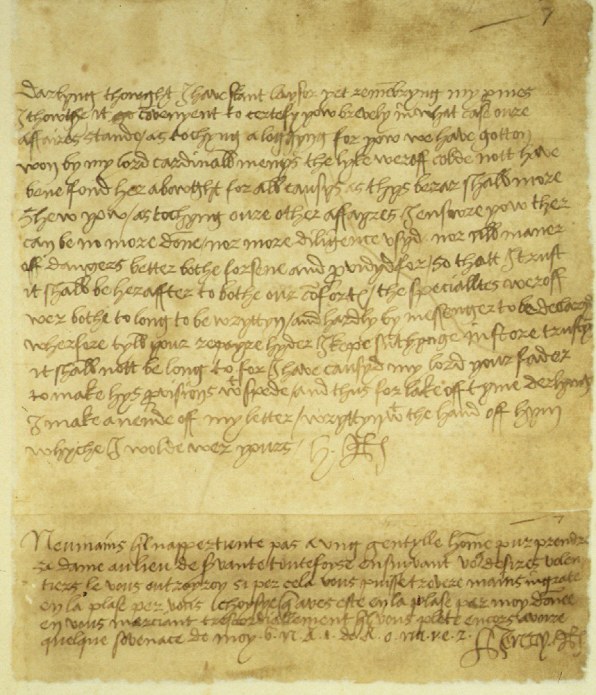 7
Darlyng thowght I have skant laysor yet remēbryng my pmes
I thowthe it covenyent to certefy yow brevely ī what case oure
affaires stande / as tochyng a loggyng for yow we have gotton
won by my lord cardinall menys the lyke weroff colde nott have
bene fond her abowght for all causys as thys berar shall more
shew yow / as tochyng oure other affayres I enswre yow ther
can be no more done / nor more diligence vsyd nor all maner
off dangers better bothe forsene and pvidyd for / so thatt I trust
it shall be heraffter to bothe our cōfort / the specialltes weroff
wer bothe to long to be wryttyn / and hardly by messenger to be declaryd
wherfore tyll your repayre hyder I kepe sūthynge in store trustyng
it shall nott be long to / for I have causyd my lord your fader
to make hys pvisions wt spede / and thus for lake off tyme derlyng
I make a nende off my letter / wryttyn wt the hand off hym
whyche I wolde wer yours / H. R
7
Neumains qil nappertiente pas a vng gentylle home pur prendre
sa dame au lieu de svante tuntefoise ensuivant vo desires volen
tiers le vous outroyroy si per cela vous puisse trevere mains ingrate
en la plase per vous choisye q aves este en la plase per moy donee
en vous merciant trescordiallement qil vous plete encors avoire
quelque sovenace de moy . b . n . R . 1 . de . R . o . na . ve . z . Henry R